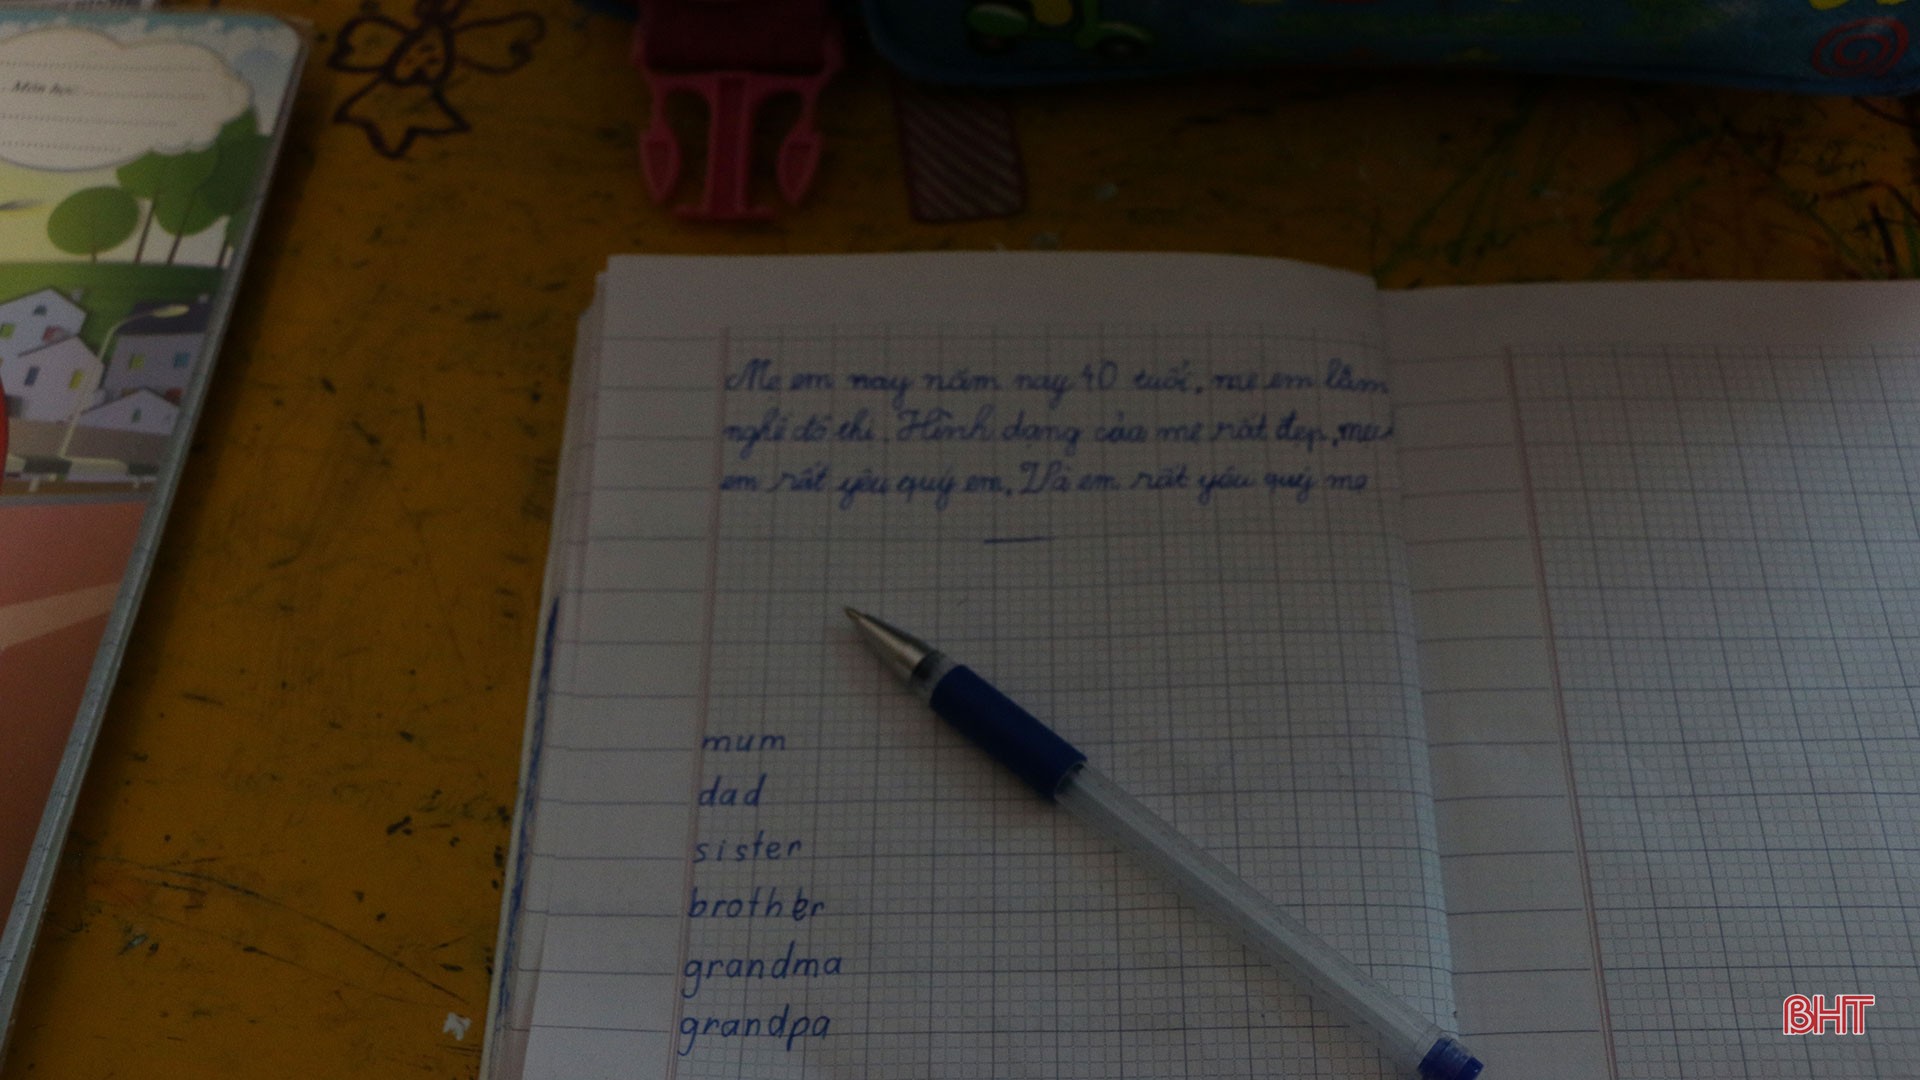 Môn học
Mẹ em nay năm nay 40 tuổi, mẹ em làm
nghề đồ thi. Hình dang của mẹ rất đẹp, mẹ
em rất yêu quý em. Và em rất yêu quý mẹ
mum
dad
sister
brother
grandma
grandpa
BHT